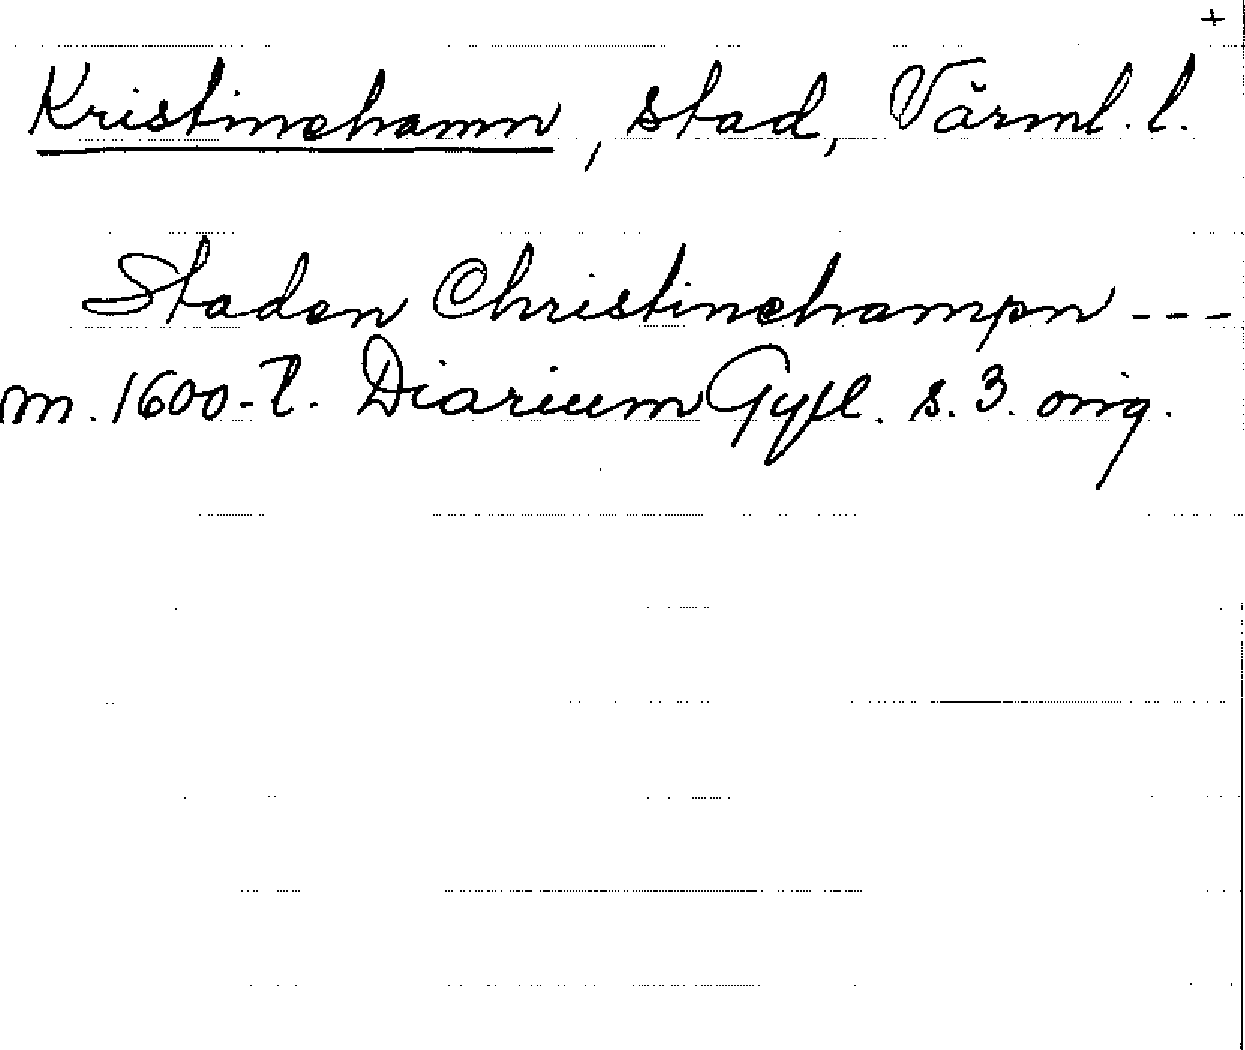 +
Kristinehamn, stad, Värml. l.
Staden Christinehampn ---
m. 1600-t. Diarium Gyll. s. 3. orig.